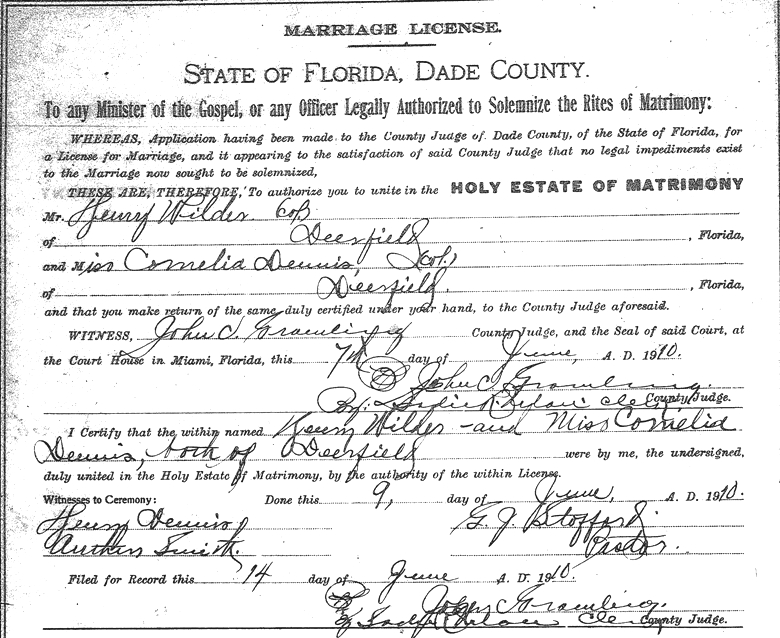 MARRIAGE LICENSE.
STATE OF FLORIDA, DADE COUNTY.
To any Minister of the Gospel, or any Officer Legally Authorized to Solemnize the Rites of Matrimony:
WHEREAS, Application having been made to the County Judge of Dade County, of the State of Florida, for
a License for Marriage, and it appearing to the satisfaction of said County Judge that no legal impediments exist
to the Marriage now sought to be solemnized,
THESE ARE, THEREFORE, To authorize you to unite in the HOLY ESTATE OF MATRIMONY
Mr. Henry Wilder Col
of Deerfield, Florida,
and Miss Cornelia Dennis, (col.)
of Deerfield, Florida,
and that you make return of the same, duly certified under your hand, to the County Judge aforesaid.
WITNESS, John C. Gramling County Judge, and the Seal of said Court, at
the Court House in Miami, Florida, this 7th day of June, A. D. 1910.
John C. Gramling.
By: Clerk County Judge.
I Certify that the within named Henry Wilder and Miss Cornelia
Dennis, both of Deerfield were by me, the undersigned,
duly united in the Holy Estate of Matrimony, by the authority of the within License.
Witnesses to Ceremony: Done this 9, day of June, A. D. 1910.
Henry Dennis G. J.
Arthur Smith. Pastor.
Filed for Record this 14 day of June A. D. 1910.
John C. Gramling.
By Clerk County Judge.